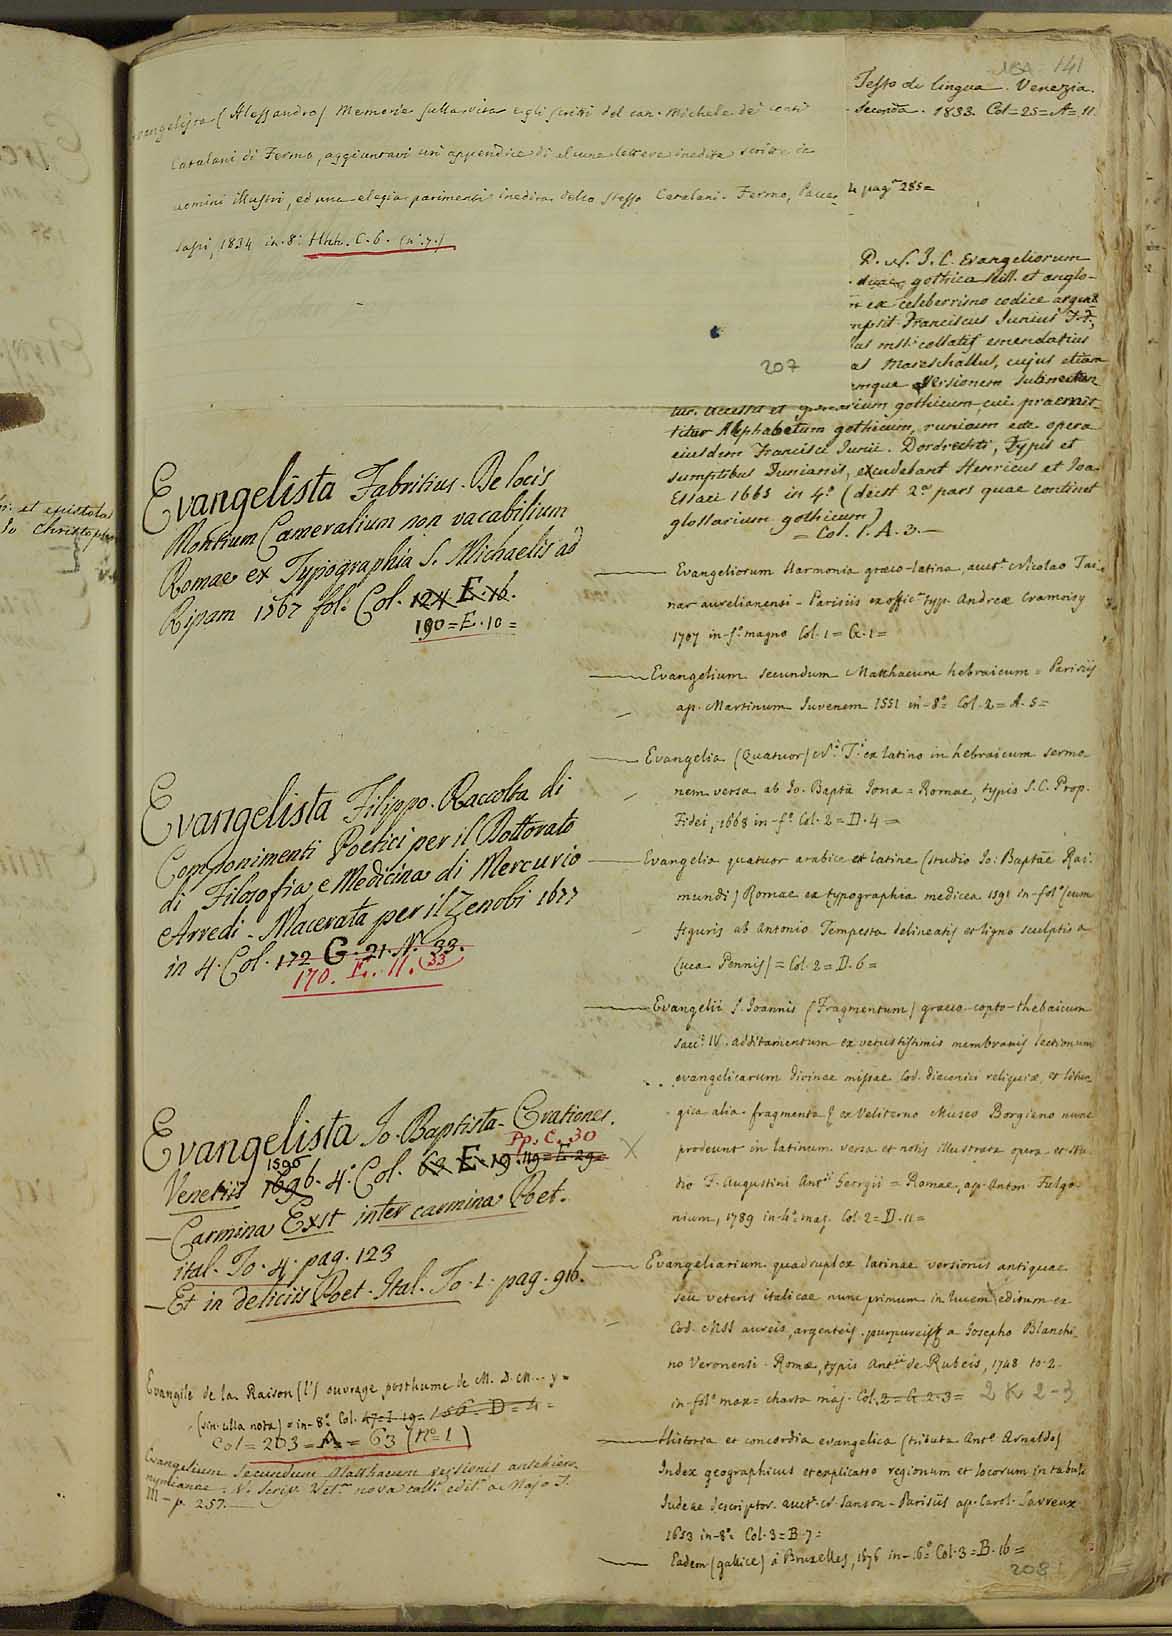 141
Evangelista (Alessandro) Memorie sulla vita e gli scritti del can. Michele dei conti
Catalani di Fermo, aggiuntavi un appendice di alcune lettere inedite scritte da
uomini illustri, ed una elegia parimenti inedita dello stesso Catalani. Fermo, Pacca-
sapi, 1834 in-8º Hhh. C. 6. (nº 7.)
207
Evangelista Fabritius. De locis
Montium Cameralium non vacabilium
Romae ex Typographia S. Michaelis ad
Ripam 1767 fol. Col. 124. E. 16.
190=E.10=
Evangelista Filippo. Raccolta di
Componimenti Poetici per il Dottorato
di Filosofia e Medicina di Mercurio
Arredi. Macerata per il Zenobi 1677
in 4. Col. 172 G. 21. N. 33.
170. E. 11. (33
Evangelista Io. Baptista. Orationes.
Pp. C. 30
Venetiis 1596. 4º Col. 69 E 19. 119=E 29=
1590
— Carmina Exst inter carmina Poet.
ital. To. 4. pag. 123
— Et in deliciis Poet. Ital. To. 1. pag. 916.
Evangile de la Raison (l') ouvrage posthume de M. D. M... y=
(sin. ulla nota) = in-8º Col. 47=I 19= 156. D=4=
Col=203=A=63 (nº 1)
Evangelium Secundum Matthaeum versionis antehiero-
nymianae. V. Scrip. Vet. nova coll. edit. a Majo T.
III - p. 257.
Testo di lingua. Venezia.
Seconda. 1833. Col=25=A=11.
4 pag. 285=
D. N. J. C. Evangeliorum
duae, gothica scil. et anglo-
ex celeberrimo codice argent.
mpsit Franciscus Junius F. F.,
as mss. collatis emendatius
as Mareschallus, cujus etiam
mque Versionem subnectun
tur. Accessit et glossarium gothicum, cui praemit-
titur Alphabetum gothicum, runicum etc. opera
ejusdem Francisci Junii. Dordrechti, Typis et
sumptibus Junianis, excudebant Henricus et Joa.
Essaei 1665 in 4º (deest 2ª pars quae continet
glossarium gothicum)
= Col. 1. A. 3. —
Evangeliorum Harmonia graeco-latina, auct. Nicolao Toi-
nar aurelianensi - Parisiis ex offic. typ. Andreae Cramoisy
1707 in-fº magno Col. 1 = G. 1 =
Evangelium secundum Matthaeum hebraicum = Parisiis
ap. Martinum Juvenem 1551 in-8º Col. 2 = A. 5 =
Evangelia (Quatuor) N. T. ex latino in hebraicum sermo-
nem versa ab Io. Bapta Iona = Romae, typis S. C. Prop.
Fidei, 1668 in-fº Col. 2 = D. 4 =
Evangelia quatuor arabice et latine (studio Jo: Baptae Rai-
mundi) Romae ex typographia medicea 1591 in-folº (cum
figuris ab Antonio Tempesta delineatis et ligno sculptis a
Luca Pennis) = Col. 2 = D. 6 =
Evangelii S. Joannis (Fragmentum) graeco-copto-thebaicum
saec. IV. additamentum ex vetustissimis membranis lectionum
evangelicarum divinae missae Cod. diaconici reliquiae, et litur-
gica alia fragmenta & ex Veliterno Museo Borgiano nunc
prodeunt in latinum versa et notis illustrata opera et stu-
dio F. Augustini Antii Georgii = Romae, ap. Anton. Fulgo-
nium, 1789 in-4º maj. Col. 2 = D. 11 =
Evangeliarium quadruplex latinae versionis antiquae
seu veteris italicae nunc primum in lucem editum ex
Cod. MSS aureis, argenteis, purpureis & a Josepho Blanchi-
no Veronensi. Romae, typis Antii de Rubeis, 1748 to. 2
in-folº max = charta maj. Col. 2 = G 2-3 = 2 K 2-3
Historia et concordia evangelica (tributa Antº Arnaldo)
Index geographicus et explicatio regionum et locorum in tabula
Judeae descriptor. auct. N. Sanson - Parisiis ap. Carol. Savreux
1653 in-8º Col. 3 = B. 7 =
Eadem (gallice) à Bruxelles, 1676 in-16º Col. 3 = B. 16 =
208